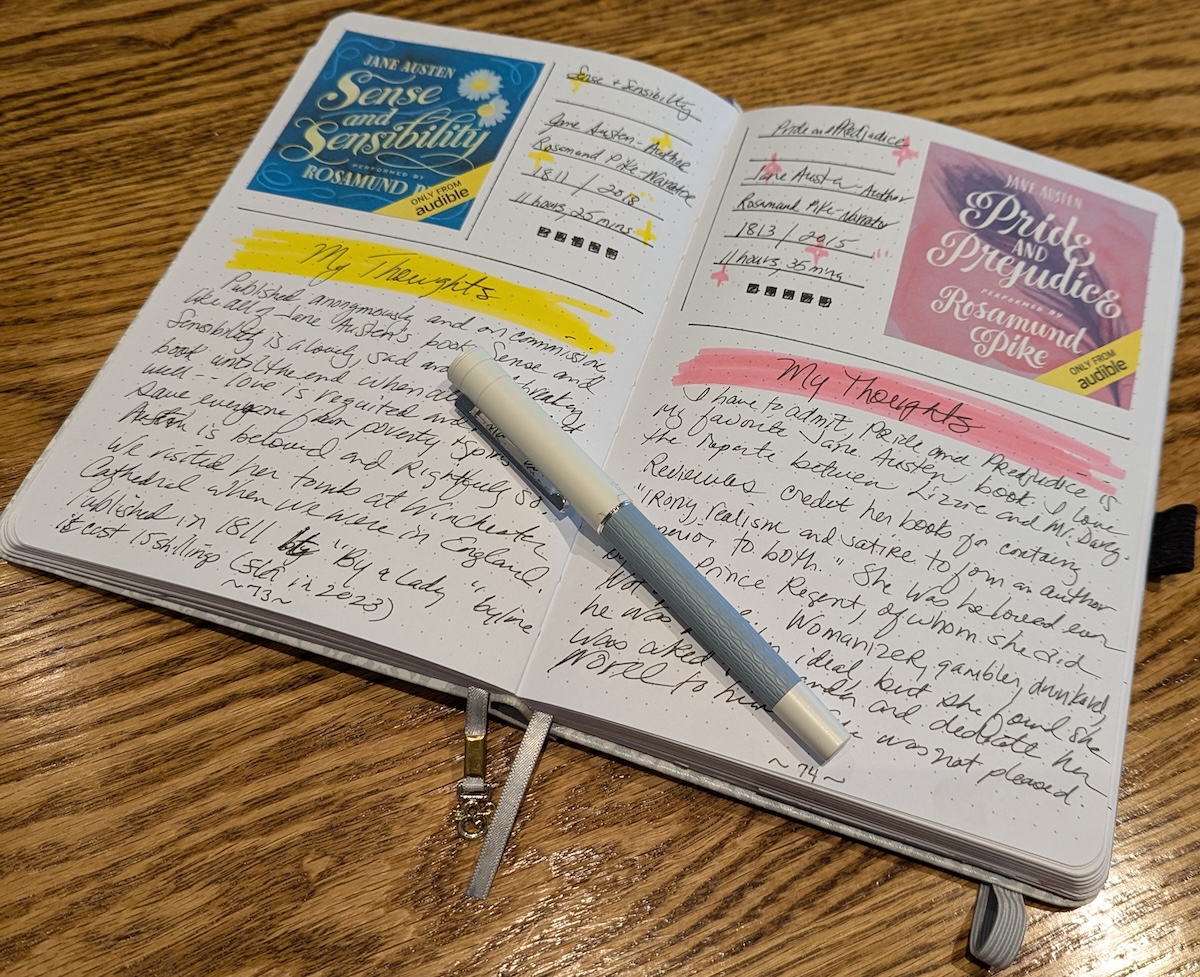 JANE AUSTEN
Sense
and
Sensibility
PERFORMED BY
ROSAMUND
ONLY FROM
audible
Sense + Sensibility
Jane Austen - Author
Rosamund Pike - Narrator
1811 / 2018
11 hours, 25 mins
My Thoughts
Published anonymously and on commission
like all of Jane Austen's books Sense and
Sensibility is a lovely, sad and breaking
book until the end when
well -- love is requited and
save everyone from poverty +
Austen is beloved and rightfully so
We visited her tomb at Winchester
Cathedral when we were in England.
Published in 1811 "By a Lady" byline
it cost 15 shillings ( in 2023)
~73~
Pride and Predjudice
Jane Austen - Author
Rosamund Pike - Narrator
1813 / 2015
11 hours, 35 mins
JANE AUSTEN
Pride
AND
Prejudice
PERFORMED BY
Rosamund
Pike
ONLY FROM
audible
My Thoughts
I have to admit Pride and Predjudice is
my favorite Jane Austen book. I love
the between Lizzie and Mr. Darcy.
Reviewers credit her books for containing
"Irony, realism and satire to form an author
to both." She was beloved even
Prince Regent, of whom she said
Womanizer, gambler, drunkard,
he was ideal but she found she
was asked and dedicate her
novel to him was not pleased.
~74~